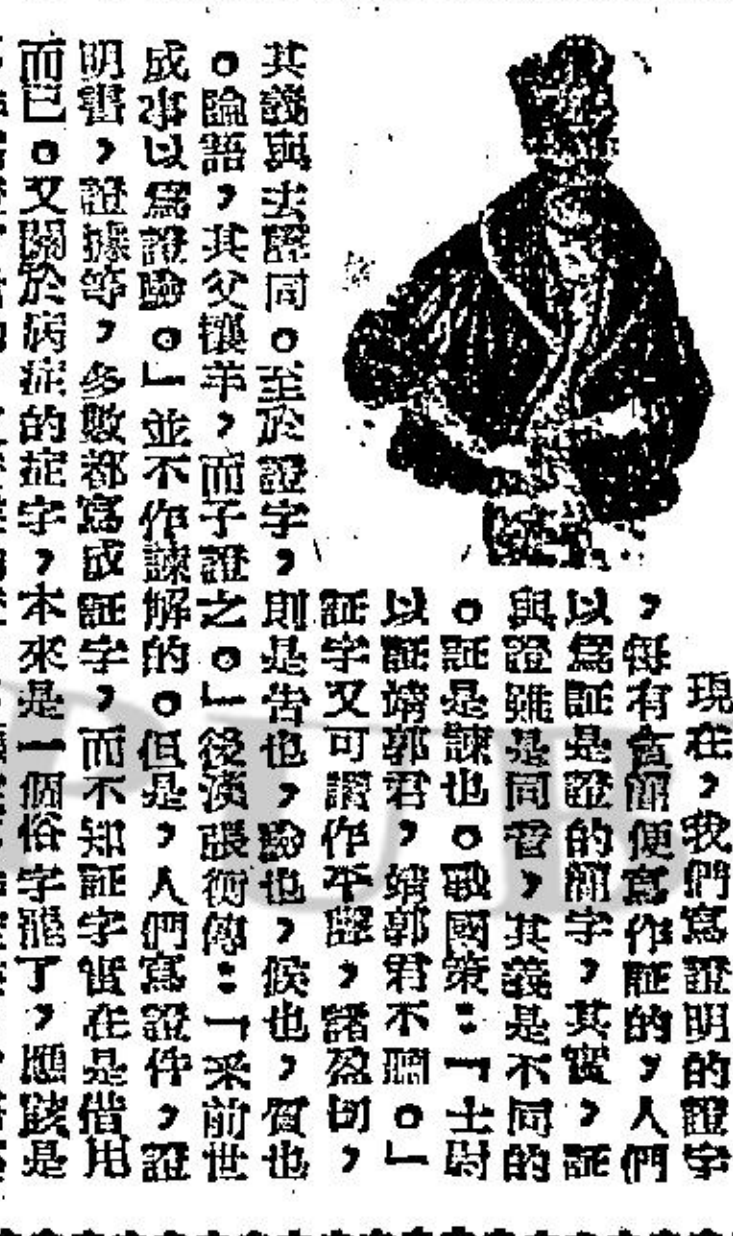 現在，我們寫證明的證字
，每有貪簡便寫作証的，人們
以爲証是證的簡字，其實，証
與證雖是同音，其義是不同的
。証是諫也。戰國策：「士尉
以証靖郭君，靖郭君不聽。」
証字又可讀作平聲，諸盈切，
其義與去聲同。至於證字，則是告也，驗也，候也，質也
。論語，其父攘羊，而子證之。」後漢張衡傳：「采前世
成事以爲證驗。」並不作諫解的。但是，人們寫證件，證
明書，證據等，多數都寫成証字，而不知証字實在是借用
而已。又關於病症的症字，本來是一個俗字罷了，應該是
PUB